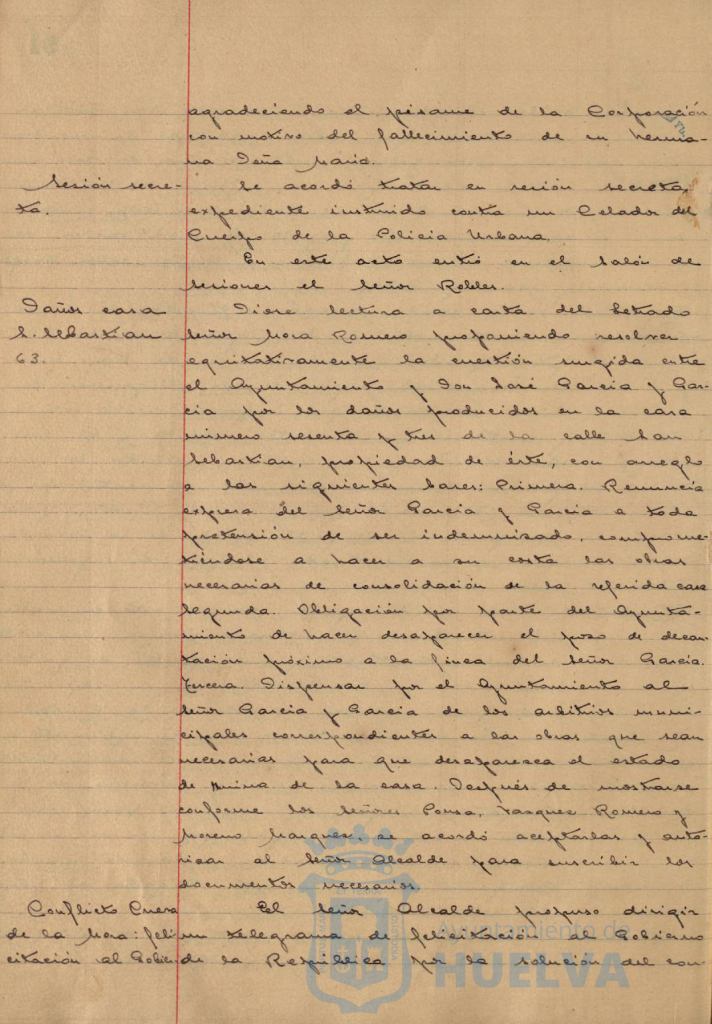 agradeciendo el pésame de la Corporación
con motivo del fallecimiento de su herma-
na Doña María.
Sesión secre-
ta.
Se acordó tratar en sesión secreta,
expediente instruido contra un Celador del
Cuerpo de la Policía Urbana.
En este acto entró en el Salón de
Sesiones el Señor Robles.
Daños casa
S. Sebastian
63.
Diose lectura a carta del Letrado
Señor Mora Romero proponiendo resolver
equitativamente la cuestión surgida entre
el Ayuntamiento y Don José García y Gar-
cia por los daños producidos en la casa
número sesenta y tres de la calle San
Sebastian, propiedad de éste, con arreglo
a las siguientes bases: Primera. Renuncia
expresa del Señor Garcia y Garcia a toda
pretensión de ser indemnizado, comprome-
tiéndose a hacer a su costa las obras
necesarias de consolidación de la referida casa
Segunda. Obligación por parte del Ayunta-
miento de hacer desaparecer el pozo de decan-
tación próximo a la finca del Señor García.
Tercera. Dispensar por el Ayuntamiento al
Señor Garcia y Garcia de los arbitrios muni-
cipales correspondientes a las obras que sean
necesarias para que desaparezca el estado
de ruina de la casa. Después de mostrarse
conforme los Señores Ponsa, Vazquez Romero y
Moreno Marquez, se acordó aceptarlas y auto-
rizar al Señor Alcalde para suscribir los
documentos necesarios.
Conflicto Cuenca
de la Mora: feli-
citación al Gobier-
El Señor Alcalde propuso dirigir
un telegrama de felicitación al Gobierno
de la República por la solución del con-
Ayuntamiento de
HUELVA